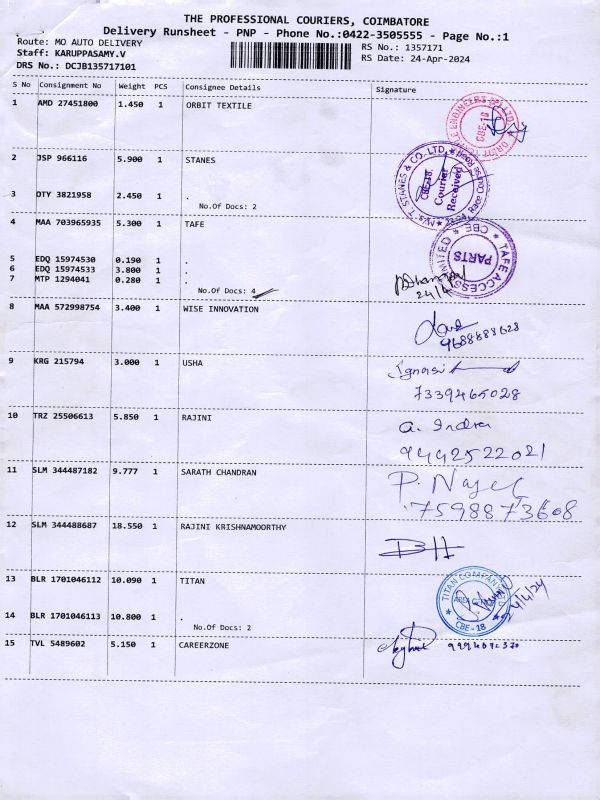 THE PROFESSIONAL COURIERS, COIMBATORE
Delivery Runsheet - PNP - Phone No.:0422-3505555 - Page No.:1
Route: MO AUTO DELIVERY
RS No.: 1357171
Staff: KARUPPASAMY.V
RS Date: 24-Apr-2024
DRS No.: DCJB135717101
S No Consignment No Weight PCS Consignee Details Signature
1 AMD 27451800 1.450 1 ORBIT TEXTILE
CBE-18
2 JSP 966116 5.900 1 STANES
M/s. T. STANES & CO. LTD.
CBE-18.
Courier
Received
3 DTY 3821958 2.450 1 .
No.Of Docs: 2
4 MAA 703965935 5.300 1 TAFE
TAFE ACCESS LIMITED ★ CBE ★
PARTS
5 EDQ 15974530 0.190 1 .
6 EDQ 15974533 3.800 1 .
7 MTP 1294041 0.280 1 .
No.Of Docs: 4
24/4
8 MAA 572998754 3.400 1 WISE INNOVATION
9688888628
9 KRG 215794 3.000 1 USHA
7339465028
10 TRZ 25506613 5.850 1 RAJINI
a. Indra
9442522021
11 SLM 344487182 9.777 1 SARATH CHANDRAN
7598873608
12 SLM 344488687 18.550 1 RAJINI KRISHNAMOORTHY
13 BLR 1701046112 10.090 1 TITAN
TITAN COMPANY LTD
CBE - 18
24/4/24
14 BLR 1701046113 10.800 1 .
No.Of Docs: 2
15 TVL 5489602 5.150 1 CAREERZONE